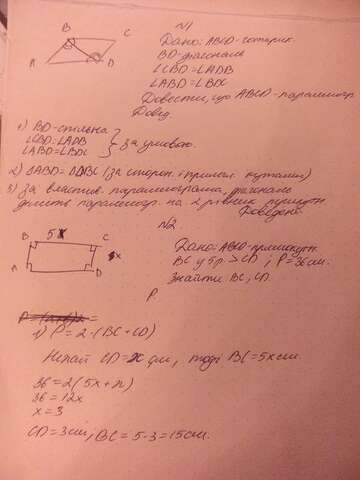 N1
B C
A D
Дано: ABCD - чотирик.
BD - діагональ
∠CBD = ∠ADB
∠ABD = ∠BDC
Довести, що ABCD - паралелогр.
Довед.
1) BD - спільна
∠CBD = ∠ADB
∠ABD = ∠BDC
за умовою.
2) ΔABD = ΔDBC (за сторон. і прилегл. кутами)
3) За властив. паралелограма, діагональ
ділить паралелогр. на 2 рівних трикутн.
Доведено.
N2
B 5x C
A D
x
Дано: ABCD - прямокутн.
BC у 5 р. > CD, P = 36 см.
Знайти BC, CD.
P.
1) P = 2 · (BC + CD)
Нехай CD = x см, тоді BC = 5x см.
36 = 2(5x + x)
36 = 12x
x = 3
CD = 3 см; BC = 5 · 3 = 15 см.